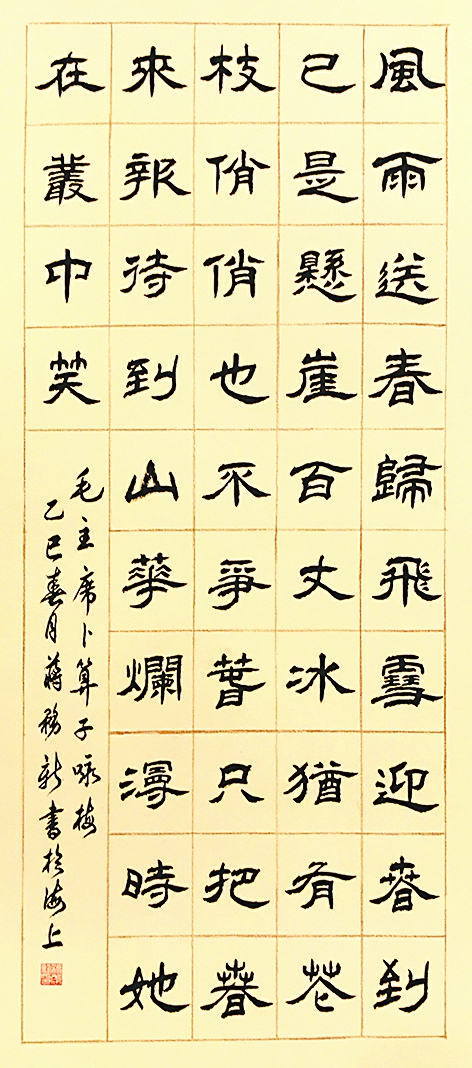 風雨送春歸飛雪迎春到
已是懸崖百丈冰猶有花
枝俏俏也不爭春只把春
來報待到山華爛漫時她
在叢中笑
毛主席卜算子咏梅
乙巳春月蔣務新書於海上